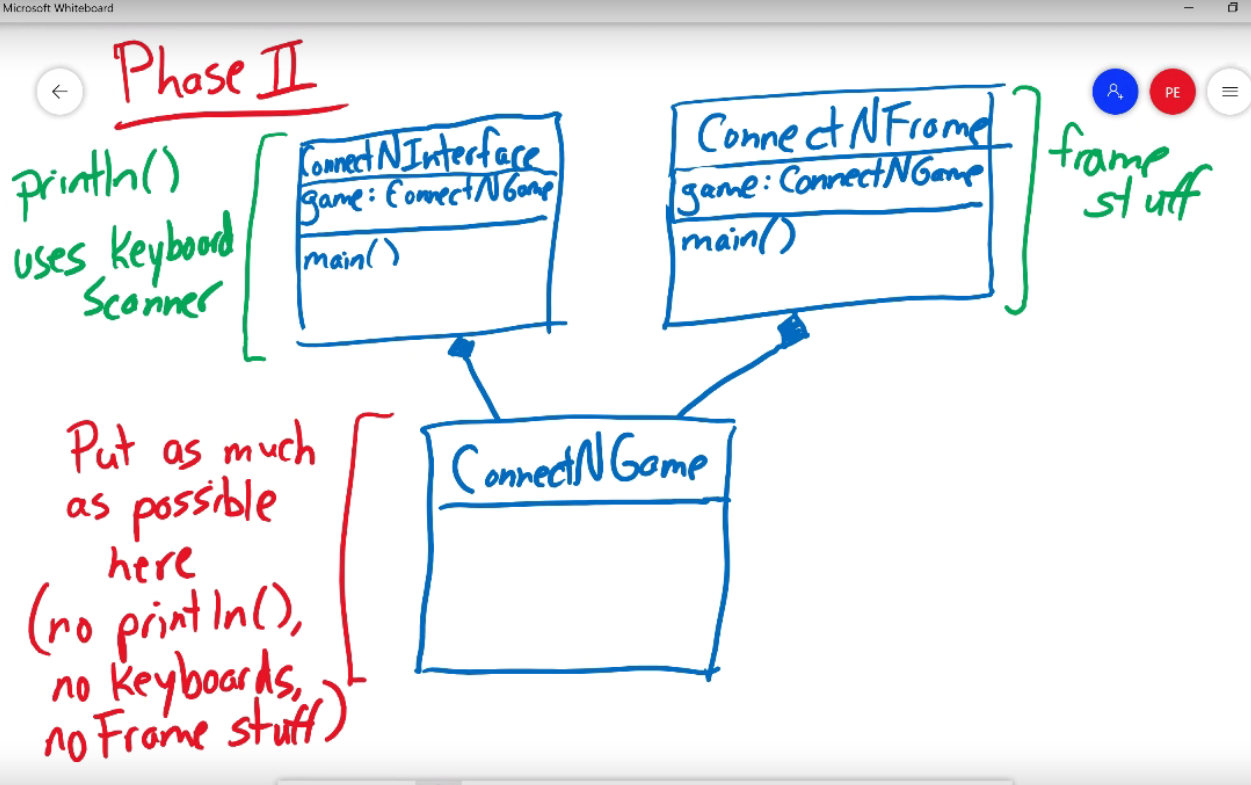 Microsoft Whiteboard
Phase II
PE
println()
uses Keyboard
Scanner
ConnectNInterface
game: ConnectNGame
main()
ConnectNFrame
game: ConnectNGame
main()
frame
stuff
Put as much
as possible
here
(no println(),
no Keyboards,
no Frame stuff)
ConnectNGame